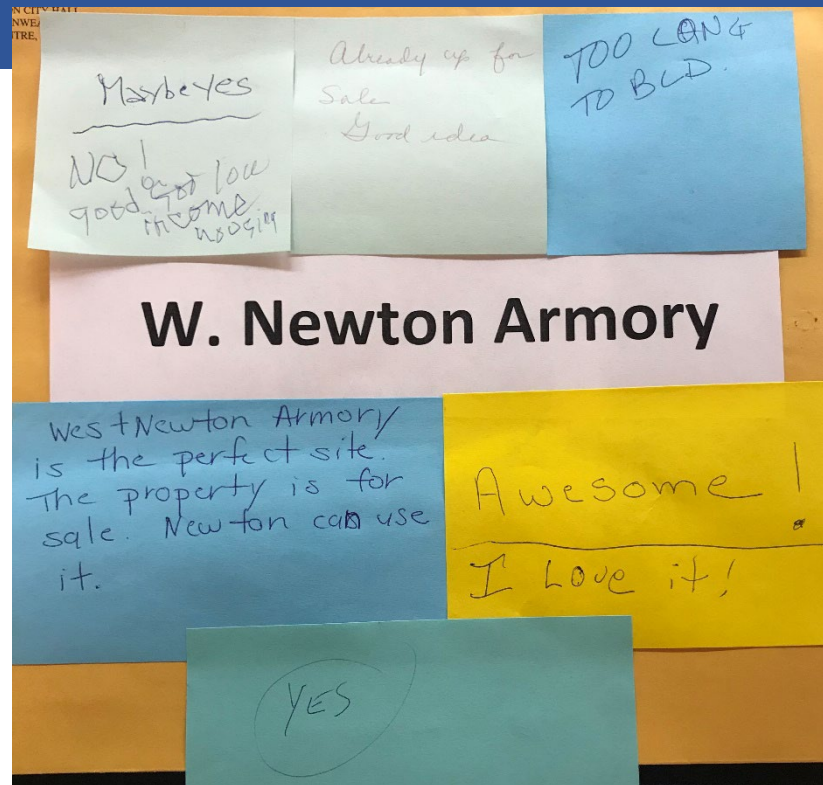 N CITY HALL
NWEA
TRE,
Maybe yes
NO!
good for low
income
housing
Already up for
Sale
Good idea
TOO LONG
TO BLD.
W. Newton Armory
West Newton Armory
is the perfect site.
The property is for
sale. Newton can use
it.
Awesome!
I Love it!
YES